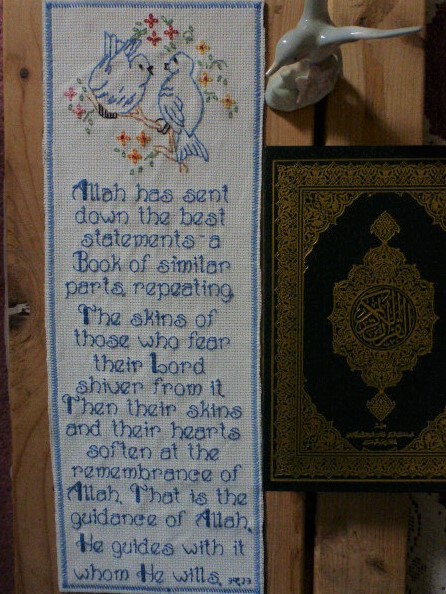 Allah has sent
down the best
statements - a
Book of similar
parts, repeating.
The skins of
those who fear
their Lord
shiver from it.
Then their skins
and their hearts
soften at the
remembrance of
Allah. That is the
guidance of Allah.
He guides with it
whom He wills. 39:23
القرآن الكريم